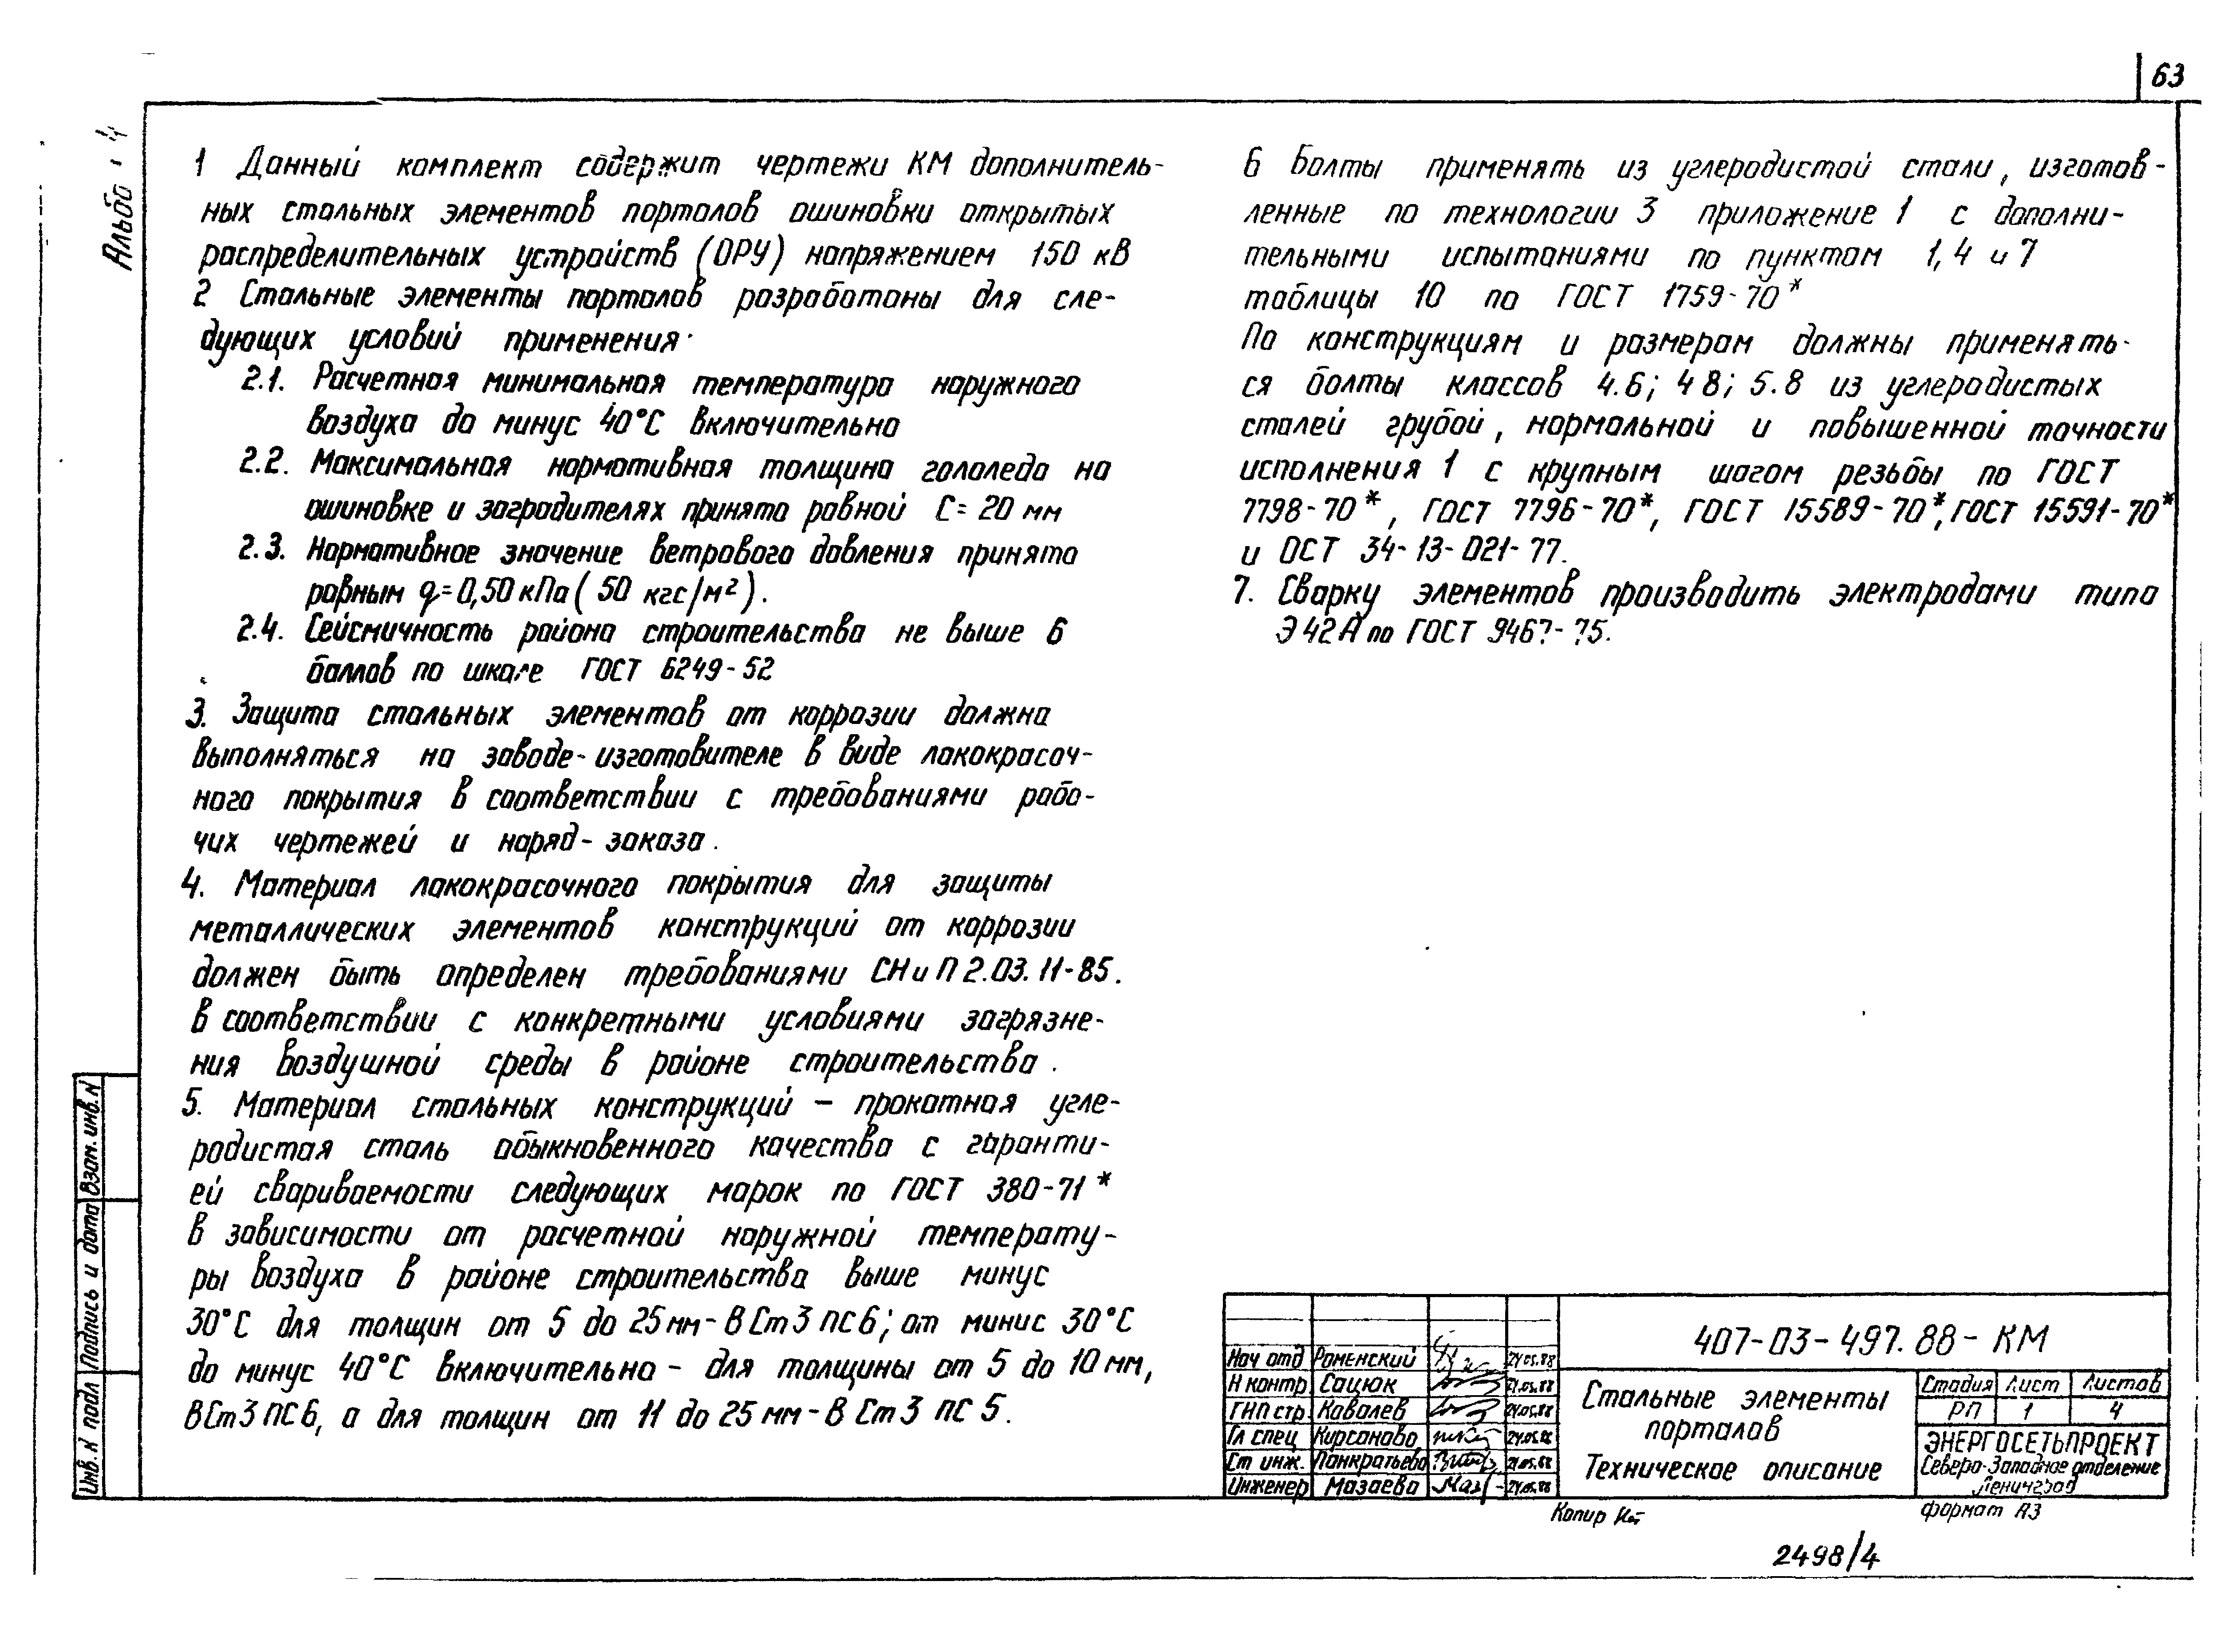 63
Альбо 4
1 Данный комплект содержит чертежи КМ дополнитель-
ных стальных элементов порталов ошиновки открытых
распределительных устройств (ОРУ) напряжением 150 кВ
2 Стальные элементы порталов разработаны для сле-
дующих условий применения.
2.1. Расчетная минимальная температура наружного
воздуха до минус 40°С включительно
2.2. Максимальная нормативная толщина гололеда на
ошиновке и заградителях принята равной С=20 мм
2.3. Нормативное значение ветрового давления принято
равным q=0,50 кПа (50 кгс/м²).
2.4. Сейсмичность района строительства не выше 6
баллов по шкале ГОСТ 6249-52
3. Защита стальных элементов от коррозии должна
выполняться на заводе-изготовителе в виде лакокрасоч-
ного покрытия в соответствии с требованиями рабо-
чих чертежей и наряд-заказа.
4. Материал лакокрасочного покрытия для защиты
металлических элементов конструкций от коррозии
должен быть определен требованиями СНиП 2.03.11-85.
в соответствии с конкретными условиями загрязне-
ния воздушной среды в районе строительства.
5. Материал стальных конструкций – прокатная угле-
родистая сталь обыкновенного качества с гаранти-
ей свариваемости следующих марок по ГОСТ 380-71*
в зависимости от расчетной наружной температу-
ры воздуха в районе строительства выше минус
30°С для толщин от 5 до 25 мм - ВСт3 пс6; от минис 30°С
до минус 40°С включительно – для толщины от 5 до 10 мм,
ВСт3 ПС6, а для толщин от 11 до 25 мм - ВСт3 ПС 5.
6 Болты применять из углеродистой стали, изготов-
ленные по технологии 3 приложение 1 с дополни-
тельными испытаниями по пунктам 1,4 и 7
таблицы 10 по ГОСТ 1759-70*
По конструкциям и размерам должны применять-
ся болты классов 4.6; 4 8; 5.8 из углеродистых
сталей грубой, нормальной и повышенной точности
исполнения 1 с крупным шагом резьбы по ГОСТ
7798-70*, ГОСТ 7796-70*, ГОСТ 15589-70*, ГОСТ 15591-70*
и ОСТ 34-13-021-77.
7. Сварку элементов производить электродами типа
Э42А по ГОСТ 9467-75.
Взам. инв. N
Подпись и дата
Инв. N подл
407-03-497.88-КМ
Нач отд Раменский 24.05.88
Н контр Сацюк 24.05.88
ГИП стр Ковалев 24.05.88
Гл спец Кирсанова 24.05.88
Ст инж. Панкратьева 24.05.88
Инженер Мазаева Маз 24.05.88
Стальные элементы
порталов
Техническое описание
Стадия Лист Листов
РП 1 4
ЭНЕРГОСЕТЬПРОЕКТ
Северо-Западное отделение
Ленинград
Копир
формат А3
2498/4